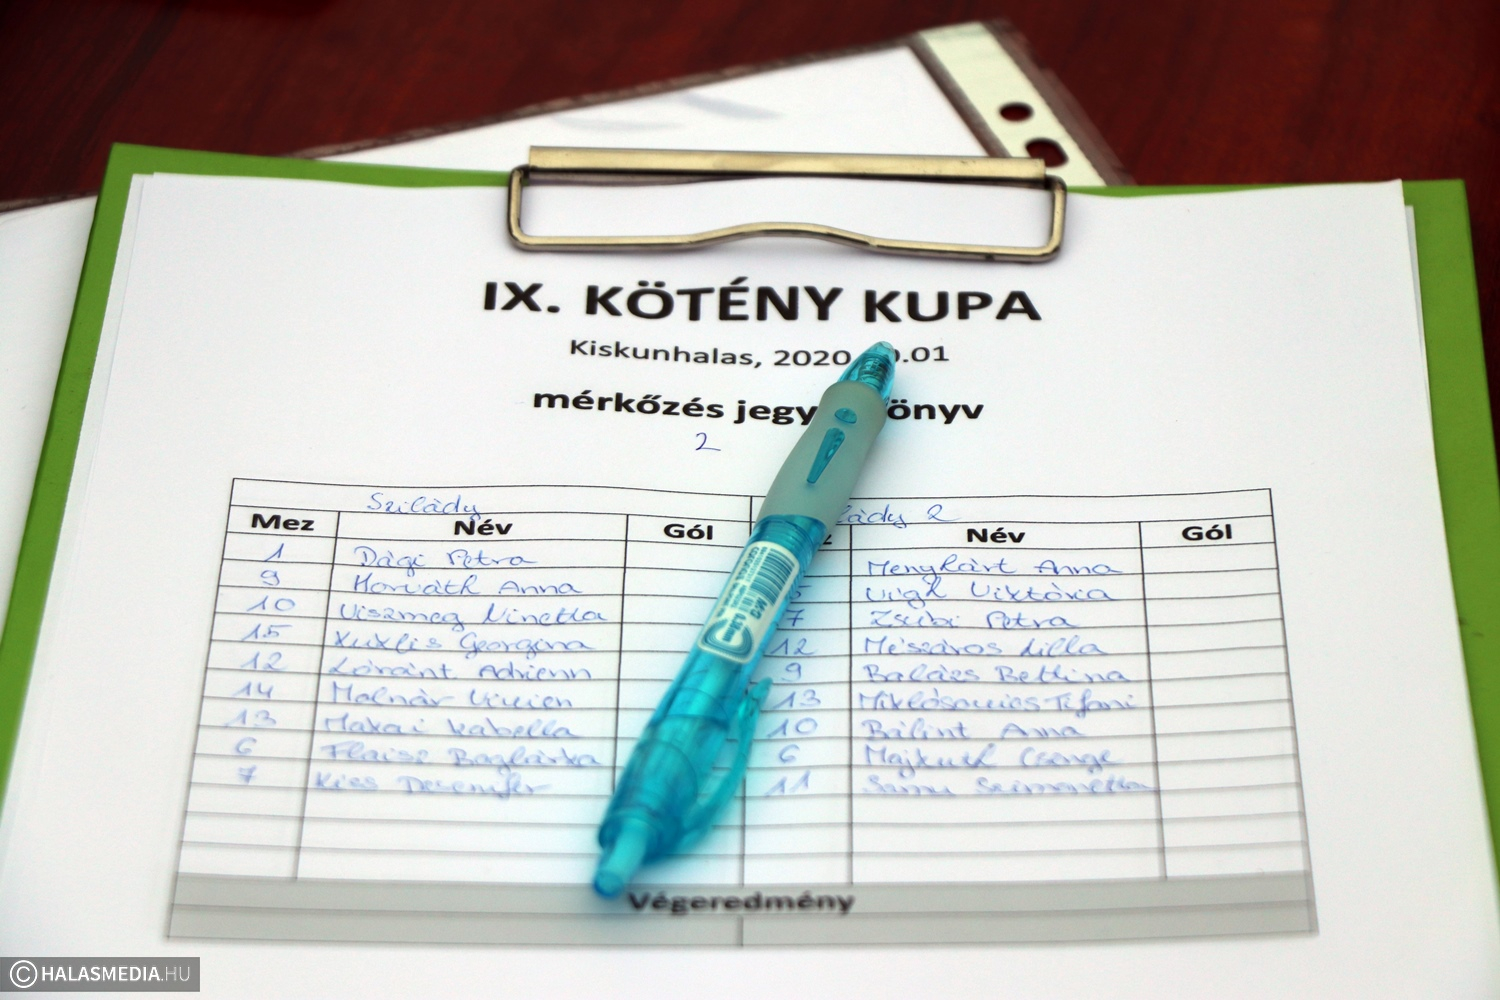 IX. KÖTÉNY KUPA
Kiskunhalas, 2020 .01
mérkőzés jegy önyv
2
Szilády lády 2
Mez Név Gól Név Gól
1 Dági Petra Menyhárt Anna
9 Horváth Anna 5 Vígh Viktória
10 Viszmeg Ninetta 7 Zsubi Petra
15 Kuklis Georgina 12 Mészáros Lilla
12 Lóránt Adrienn 9 Balázs Bettina
14 Molnár Vivien 13 Tifani
13 Makai Izabella 10 Bálint Anna
6 Flaisz Boglárka 6 Majkuth Csenge
7 Kiss 11 Samu Szimonetta
Végeredmény
© HALASMEDIA.HU